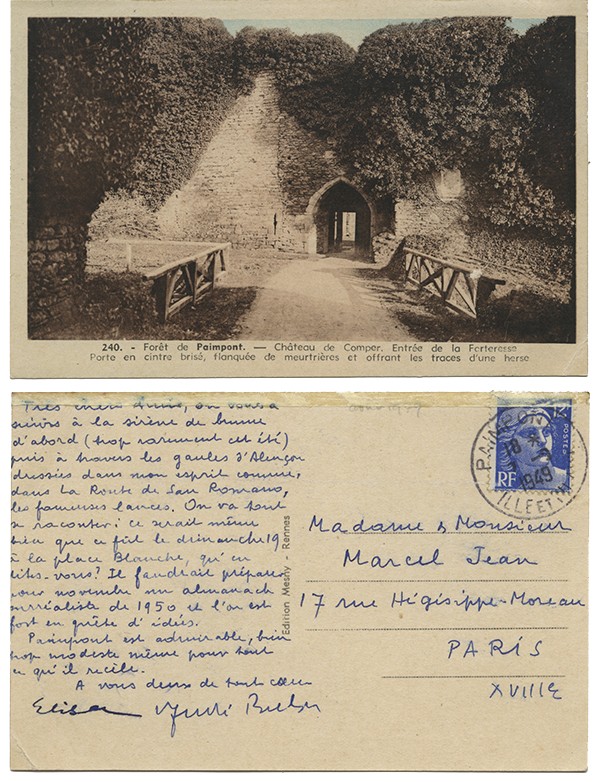 240. - Forêt de Paimpont. — Château de Comper. Entrée de la Forteresse
Porte en cintre brisé, flanquée de meurtrières et offrant les traces d'une herse
Très chers amis, on vous a
suivis à la sirène de brume
d'abord (trop rarement cet été)
puis à travers les gaules d'Alençon
dressées dans mon esprit comme,
dans La Route de San Romano,
les fameuses lances. On va tout
se raconter : ce serait même
bien que ce fût le dimanche 19
à la place Blanche, qu'en
dites-vous? Il faudrait préparer
pour novembre un almanach
surréaliste de 1950 et l'on est
fort en quête d'idées.
Paimpont est admirable, bien
trop modeste même pour tout
ce qu'il recèle.
A vous deux de tout cœur
Elisa André Breton
Edition Mesny - Rennes
PAIMPONT
18
1949
ILLE ET V
12
POSTES
RF
Madame & Monsieur
Marcel Jean
17 rue Hégésippe-Moreau
PARIS
XVIIIe